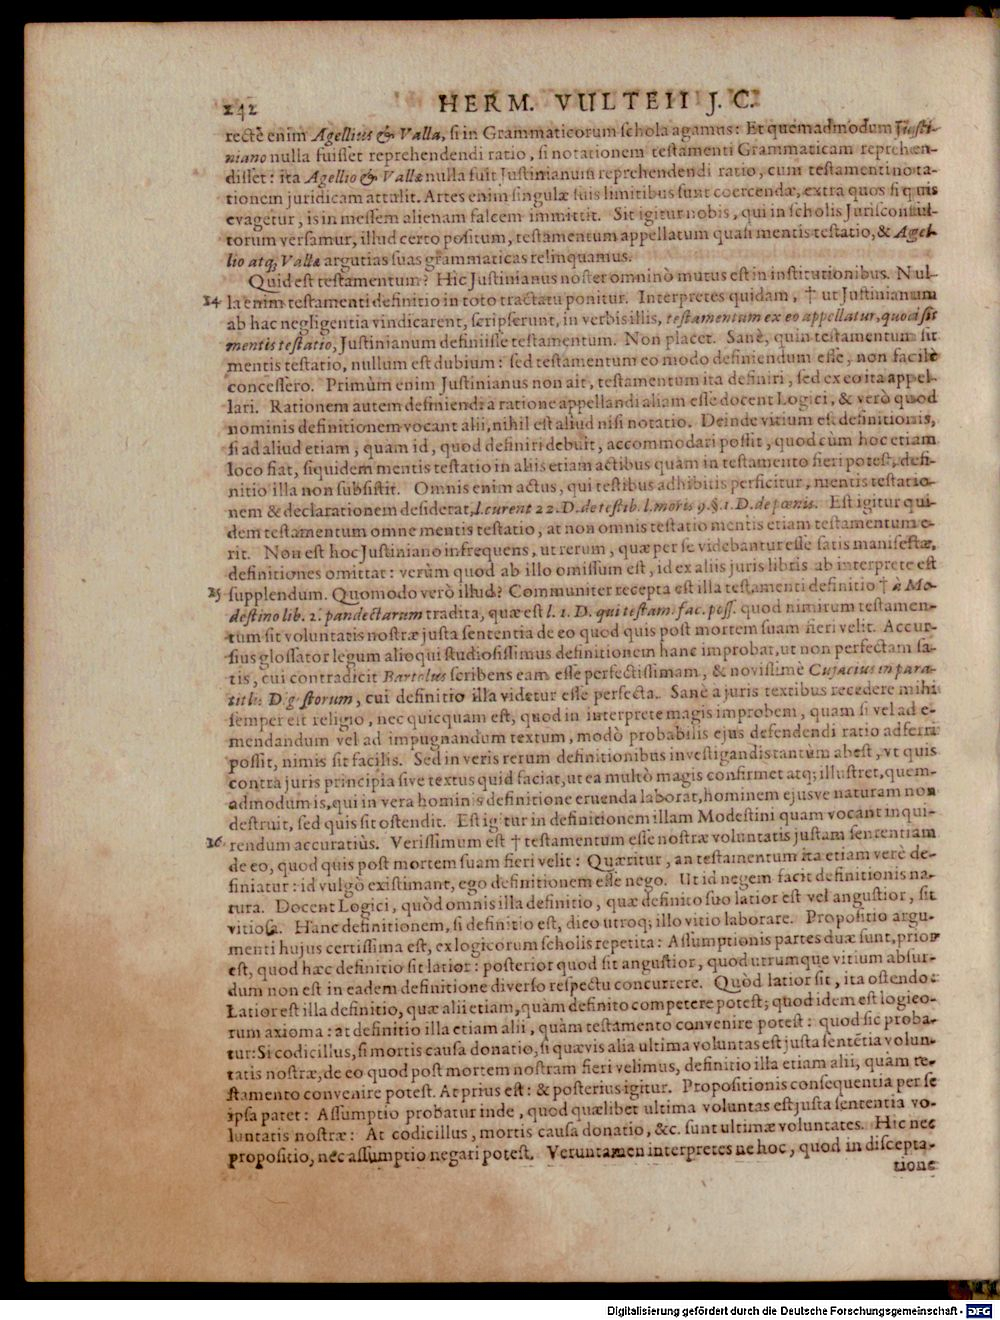 242 HERM. VULTEII J. C.
rectè enim Agellius & Valla, si in Grammaticorum schola agamus: Et quemadmodum Justi-
niano nulla fuisset reprehendendi ratio, si notationem testamenti Grammaticam reprehen-
disset: ita Agellio & Vallæ nulla fuit Justinianum reprehendendi ratio, cum testamenti nota-
tionem juridicam attulit. Artes enim singulæ suis limitibus sunt coercendæ, extra quos si quis
evagetur, is in messem alienam falcem immittit. Sit igitur nobis, qui in scholis Jurisconsul-
torum versamur, illud certo positum, testamentum appellatum quasi mentis testatio, & Agel-
lio atq; Vallæ argutias suas grammaticas relinquamus.
Quid est testamentum? Hic Justinianus noster omninò mutus est in institutionibus. Nul-
24 la enim testamenti definitio in toto tractatu ponitur. Interpretes quidam, † ut Justinianum
ab hac negligentia vindicarent, scripserunt, in verbis illis, testamentum ex eo appellatur, quod sit
mentis testatio, Justinianum definiisse testamentum. Non placet. Sanè, quin testamentum sit
mentis testatio, nullum est dubium: sed testamentum eo modo definiendum esse, non facilè
concessero. Primùm enim Justinianus non ait, testamentum ita definiri, sed ex eo ita appel-
lari. Rationem autem definiendi à ratione appellandi aliam esse docent Logici, & verò quod
nominis definitionem vocant alii, nihil est aliud nisi notatio. Deinde vitium est definitionis,
si ad aliud etiam, quam id, quod definiri debuit, accommodari possit, quod cùm hoc etiam
loco fiat, siquidem mentis testatio in aliis etiam actibus quàm in testamento fieri potest, defi-
nitio illa non subsistit. Omnis enim actus, qui testibus adhibitis perficitur, mentis testatio-
nem & declarationem desiderat, l. curent 22. D. de testib. l. moris 9. §. 1. D. de pœnis. Est igitur qui-
dem testamentum omne mentis testatio, at non omnis testatio mentis etiam testamentum e-
rit. Non est hoc Justiniano infrequens, ut rerum, quæ per se videbantur esse satis manifestæ,
definitiones omittat: verùm quod ab illo omissum est, id ex aliis juris libris ab interprete est
25 supplendum. Quomodo verò illud? Communiter recepta est illa testamenti definitio † à Mo-
destino lib. 2. pandectarum tradita, quæ est l. 1. D. qui testam. fac. poss. quod nimirum testamen-
tum sit voluntatis nostræ justa sententia de eo quod quis post mortem suam fieri velit. Accur-
sius glossator legum alioqui studiosissimus definitionem hanc improbat, ut non perfectam sa-
tis, cui contradicit Bartolus scribens eam esse perfectissimam, & novissimè Cujacius in para-
titlis D.gestorum, cui definitio illa videtur esse perfecta. Sanè a juris textibus recedere mihi
semper est religio, nec quicquam est, quod in interprete magis improbem, quam si vel ad e-
mendandum vel ad impugnandum textum, modò probabilis ejus defendendi ratio adferri
possit, nimis sit facilis. Sed in veris rerum definitionibus investigandis tantùm abest, vt quis
contra juris principia sive textus quid faciat, ut ea multò magis confirmet atq; illustret, quem-
admodum is, qui in vera hominis definitione eruenda laborat, hominem ejusve naturam non
destruit, sed quis sit ostendit. Est igitur in definitionem illam Modestini quam vocant inqui-
26 rendum accuratiùs. Verissimum est † testamentum esse nostræ voluntatis justam sententiam
de eo, quod quis post mortem suam fieri velit: Quæritur, an testamentum ita etiam verè de-
finiatur: id vulgò existimant, ego definitionem esse nego. Ut id negem facit definitionis na-
tura. Docent Logici, quòd omnis illa definitio, quæ definito suo latior est vel angustior, sit
vitiosa. Hanc definitionem, si definitio est, dico utroq; illo vitio laborare. Propositio argu-
menti hujus certissima est, ex logicorum scholis repetita: Assumptionis partes duæ sunt, prior
est, quod hæc definitio sit latior: posterior quod sit angustior, quod utrumque vitium absur-
dum non est in eadem definitione diverso respectu concurrere. Quòd latior sit, ita ostendo:
Latior est illa definitio, quæ alii etiam, quàm definito competere potest; quod idem est logico-
rum axioma: at definitio illa etiam alii, quàm testamento convenire potest: quod sic proba-
tur: Si codicillus, si mortis causa donatio, si quævis alia ultima voluntas est justa sentētia volun-
tatis nostræ, de eo quod post mortem nostram fieri velimus, definitio illa etiam alii, quàm te-
stamento convenire potest. At prius est: & posterius igitur. Propositionis consequentia per se
ipsa patet: Assumptio probatur inde, quod quælibet ultima voluntas est justa sententia vo-
luntatis nostræ: At codicillus, mortis causa donatio, &c. sunt ultimæ voluntates. Hic nec
propositio, nec assumptio negari potest. Veruntamen interpretes ne hoc, quod in discepta-
tione
Digitalisierung gefördert durch die Deutsche Forschungsgemeinschaft - DFG